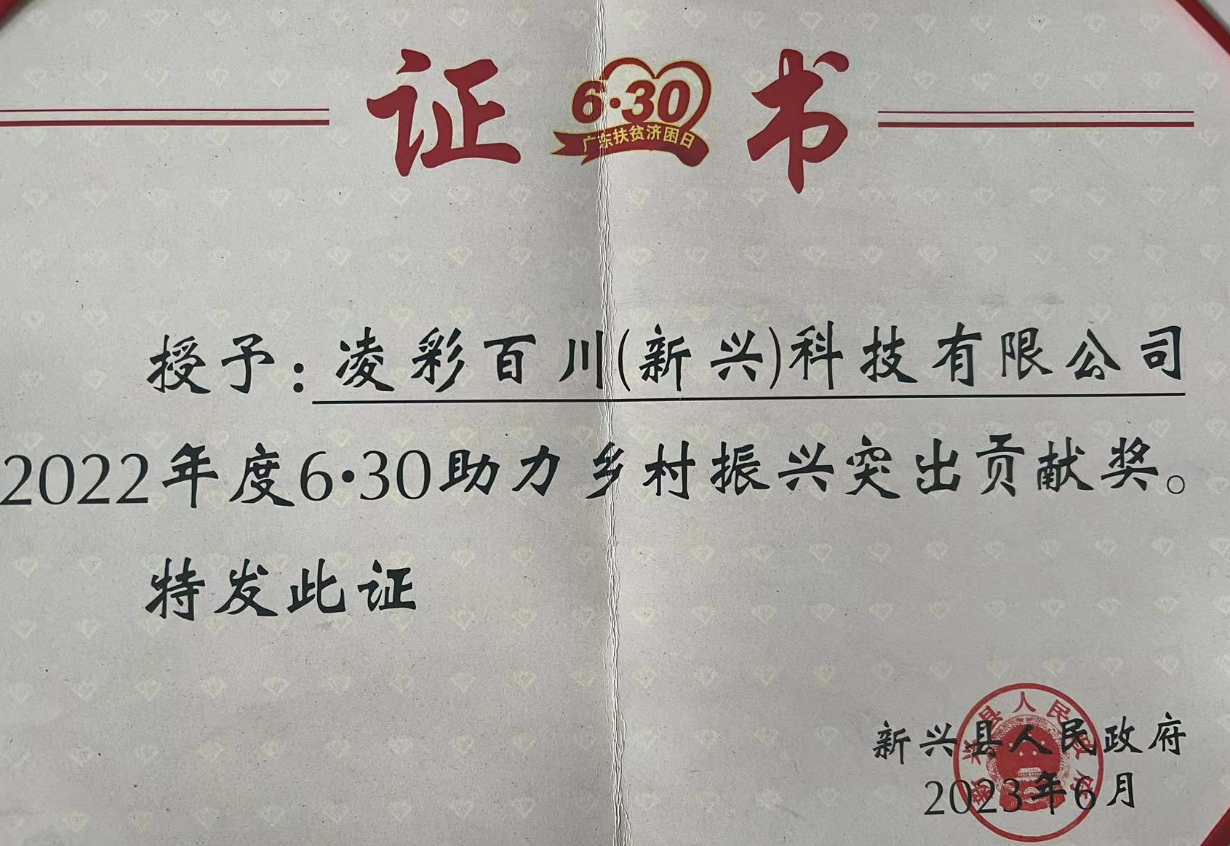 证 6·30 书
广东扶贫济困日
授予：凌彩百川(新兴)科技有限公司
2022年度6·30助力乡村振兴突出贡献奖。
特发此证
新兴县人民政府
2023年6月
新兴县人民政府